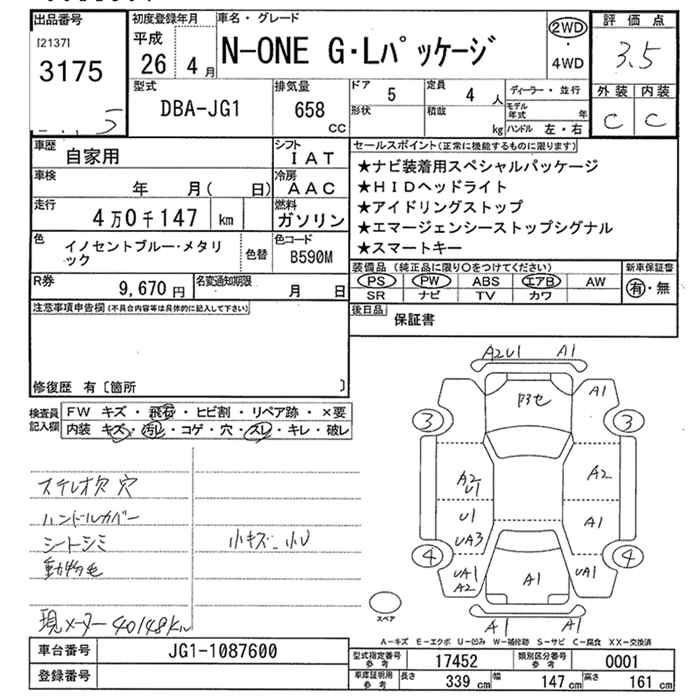 出品番号
[2137]
3175
初度登録年月
平成
26 4月
車名・グレード
N-ONE G・Lパッケージ
2WD
・
4WD
評価点
3.5
外装 内装
C C
型式
DBA-JG1
排気量
658
cc
ドア 5
定員 4 人
形状
積載 kg
ディーラー・並行
モデル年式 年
ハンドル 左・右
車歴 自家用
シフト IAT
車検 年 月( 日)
冷房 AAC
走行 4万0千147 km
燃料 ガソリン
色 イノセントブルー・メタリック
色替
色コード B590M
R券 9,670円
名変通知期限 月 日
セールスポイント(正常に機能するものに限ります)
★ナビ装着用スペシャルパッケージ
★HIDヘッドライト
★アイドリングストップ
★エマージェンシーストップシグナル
★スマートキー
装備品 (純正品に限り○をつけてください)
PS PW ABS エアB AW
SR ナビ TV カワ
新車保証書
有・無
後日品 保証書
注意事項申告欄(不具合内容等は具体的に記入して下さい)
修復歴 有〔箇所 〕
検査員記入欄
FW キズ・飛石・ヒビ割・リペア跡・×要
内装 キズ・汚レ・コゲ・穴・スレ・キレ・破レ
ステレオ欠 穴
ハンドルカバー
シートシミ
動物毛
小キズ、小U
現メーター 40148km
A2U1 A1
A1
3 3
A2 U1
A2
U1
UA3
A1
4 4
UA1
A2
A1
UA1
A1 A1
スペア
A-キズ E-エクボ U-凹み W-補修跡 S-サビ C-腐食 XX-交換済
車台番号 JG1-1087600
登録番号
型式指定番号 参考 17452
類別区分番号 参考 0001
車庫証明用 参考
長さ 339 cm
幅 147 cm
高さ 161 cm